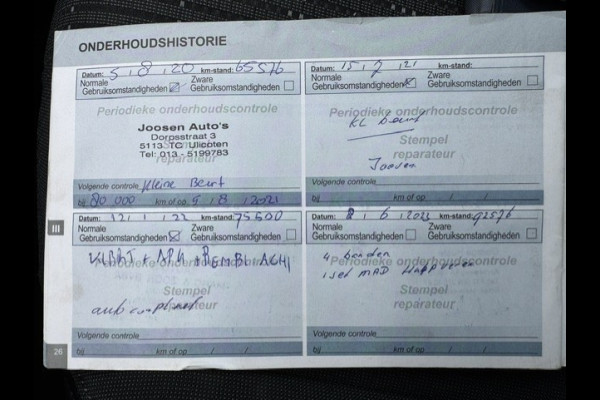 ONDERHOUDSHISTORIE
Datum: 5 / 8 / 20 km-stand: 65576
Normale Gebruiksomstandigheden Zware Gebruiksomstandigheden
Periodieke onderhoudscontrole
Joosen Auto's
Dorpsstraat 3
5113 TC Ulicoten
Tel: 013 - 5199783
Volgende controle Kleine Beurt
bij 80 000 km of op 5 / 8 / 2021
Datum: 15 / 7 / 21 km-stand:
Normale Gebruiksomstandigheden Zware Gebruiksomstandigheden
Periodieke onderhoudscontrole
KL Beurt
Stempel
reparateur
Joosen
Volgende controle
bij km of op / /
III
Datum: 12 / 1 / 22 km-stand: 75500
Normale Gebruiksomstandigheden Zware Gebruiksomstandigheden
Periodieke onderhoudscontrole
+ APK +
Stempel
reparateur
Volgende controle
bij km of op / /
Datum: 8 / 6 / 2023 km-stand: 92576
Normale Gebruiksomstandigheden Zware Gebruiksomstandigheden
Periodieke onderhoudscontrole
4 banden
1 set
Stempel
reparateur
Volgende controle
bij km of op / /
26